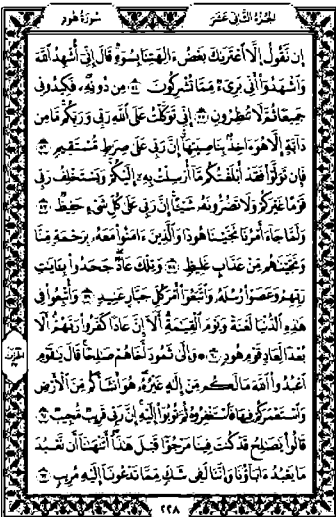 الجزء الثاني عشر سورة هود
إِن نَّقُولُ إِلَّا ٱعْتَرَىٰكَ بَعْضُ ءَالِهَتِنَا بِسُوٓءٍ ۗ قَالَ إِنِّىٓ أُشْهِدُ ٱللَّهَ
وَٱشْهَدُوٓا۟ أَنِّى بَرِىٓءٌ مِّمَّا تُشْرِكُونَ ٥٤ مِن دُونِهِۦ ۖ فَكِيدُونِى
جَمِيعًا ثُمَّ لَا تُنظِرُونِ ٥٥ إِنِّى تَوَكَّلْتُ عَلَى ٱللَّهِ رَبِّى وَرَبِّكُم ۚ مَّا مِن
دَآبَّةٍ إِلَّا هُوَ ءَاخِذٌۢ بِنَاصِيَتِهَآ ۚ إِنَّ رَبِّى عَلَىٰ صِرَٰطٍ مُّسْتَقِيمٍ ٥٦
فَإِن تَوَلَّوْا۟ فَقَدْ أَبْلَغْتُكُم مَّآ أُرْسِلْتُ بِهِۦٓ إِلَيْكُمْ ۚ وَيَسْتَخْلِفُ رَبِّى
قَوْمًا غَيْرَكُمْ وَلَا تَضُرُّونَهُۥ شَيْـًٔا ۚ إِنَّ رَبِّى عَلَىٰ كُلِّ شَىْءٍ حَفِيظٌ ٥٧
وَلَمَّا جَآءَ أَمْرُنَا نَجَّيْنَا هُودًا وَٱلَّذِينَ ءَامَنُوا۟ مَعَهُۥ بِرَحْمَةٍ مِّنَّا
وَنَجَّيْنَٰهُم مِّنْ عَذَابٍ غَلِيظٍ ٥٨ وَتِلْكَ عَادٌ ۖ جَحَدُوا۟ بِـَٔايَٰتِ
رَبِّهِمْ وَعَصَوْا۟ رُسُلَهُۥ وَٱتَّبَعُوٓا۟ أَمْرَ كُلِّ جَبَّارٍ عَنِيدٍ ٥٩ وَأُتْبِعُوا۟ فِى
هَٰذِهِ ٱلدُّنْيَا لَعْنَةً وَيَوْمَ ٱلْقِيَٰمَةِ ۗ أَلَآ إِنَّ عَادًا كَفَرُوا۟ رَبَّهُمْ ۗ أَلَا
بُعْدًا لِّعَادٍ قَوْمِ هُودٍ ٦٠ ۞ وَإِلَىٰ ثَمُودَ أَخَاهُمْ صَٰلِحًا ۚ قَالَ يَٰقَوْمِ
ٱعْبُدُوا۟ ٱللَّهَ مَا لَكُم مِّنْ إِلَٰهٍ غَيْرُهُۥ ۖ هُوَ أَنشَأَكُم مِّنَ ٱلْأَرْضِ
وَٱسْتَعْمَرَكُمْ فِيهَا فَٱسْتَغْفِرُوهُ ثُمَّ تُوبُوٓا۟ إِلَيْهِ ۚ إِنَّ رَبِّى قَرِيبٌ مُّجِيبٌ ٦١
قَالُوا۟ يَٰصَٰلِحُ قَدْ كُنتَ فِينَا مَرْجُوًّا قَبْلَ هَٰذَآ ۖ أَتَنْهَىٰنَآ أَن نَّعْبُدَ
مَا يَعْبُدُ ءَابَآؤُنَا وَإِنَّنَا لَفِى شَكٍّ مِّمَّا تَدْعُونَآ إِلَيْهِ مُرِيبٍ ٦٢
٢٢٨